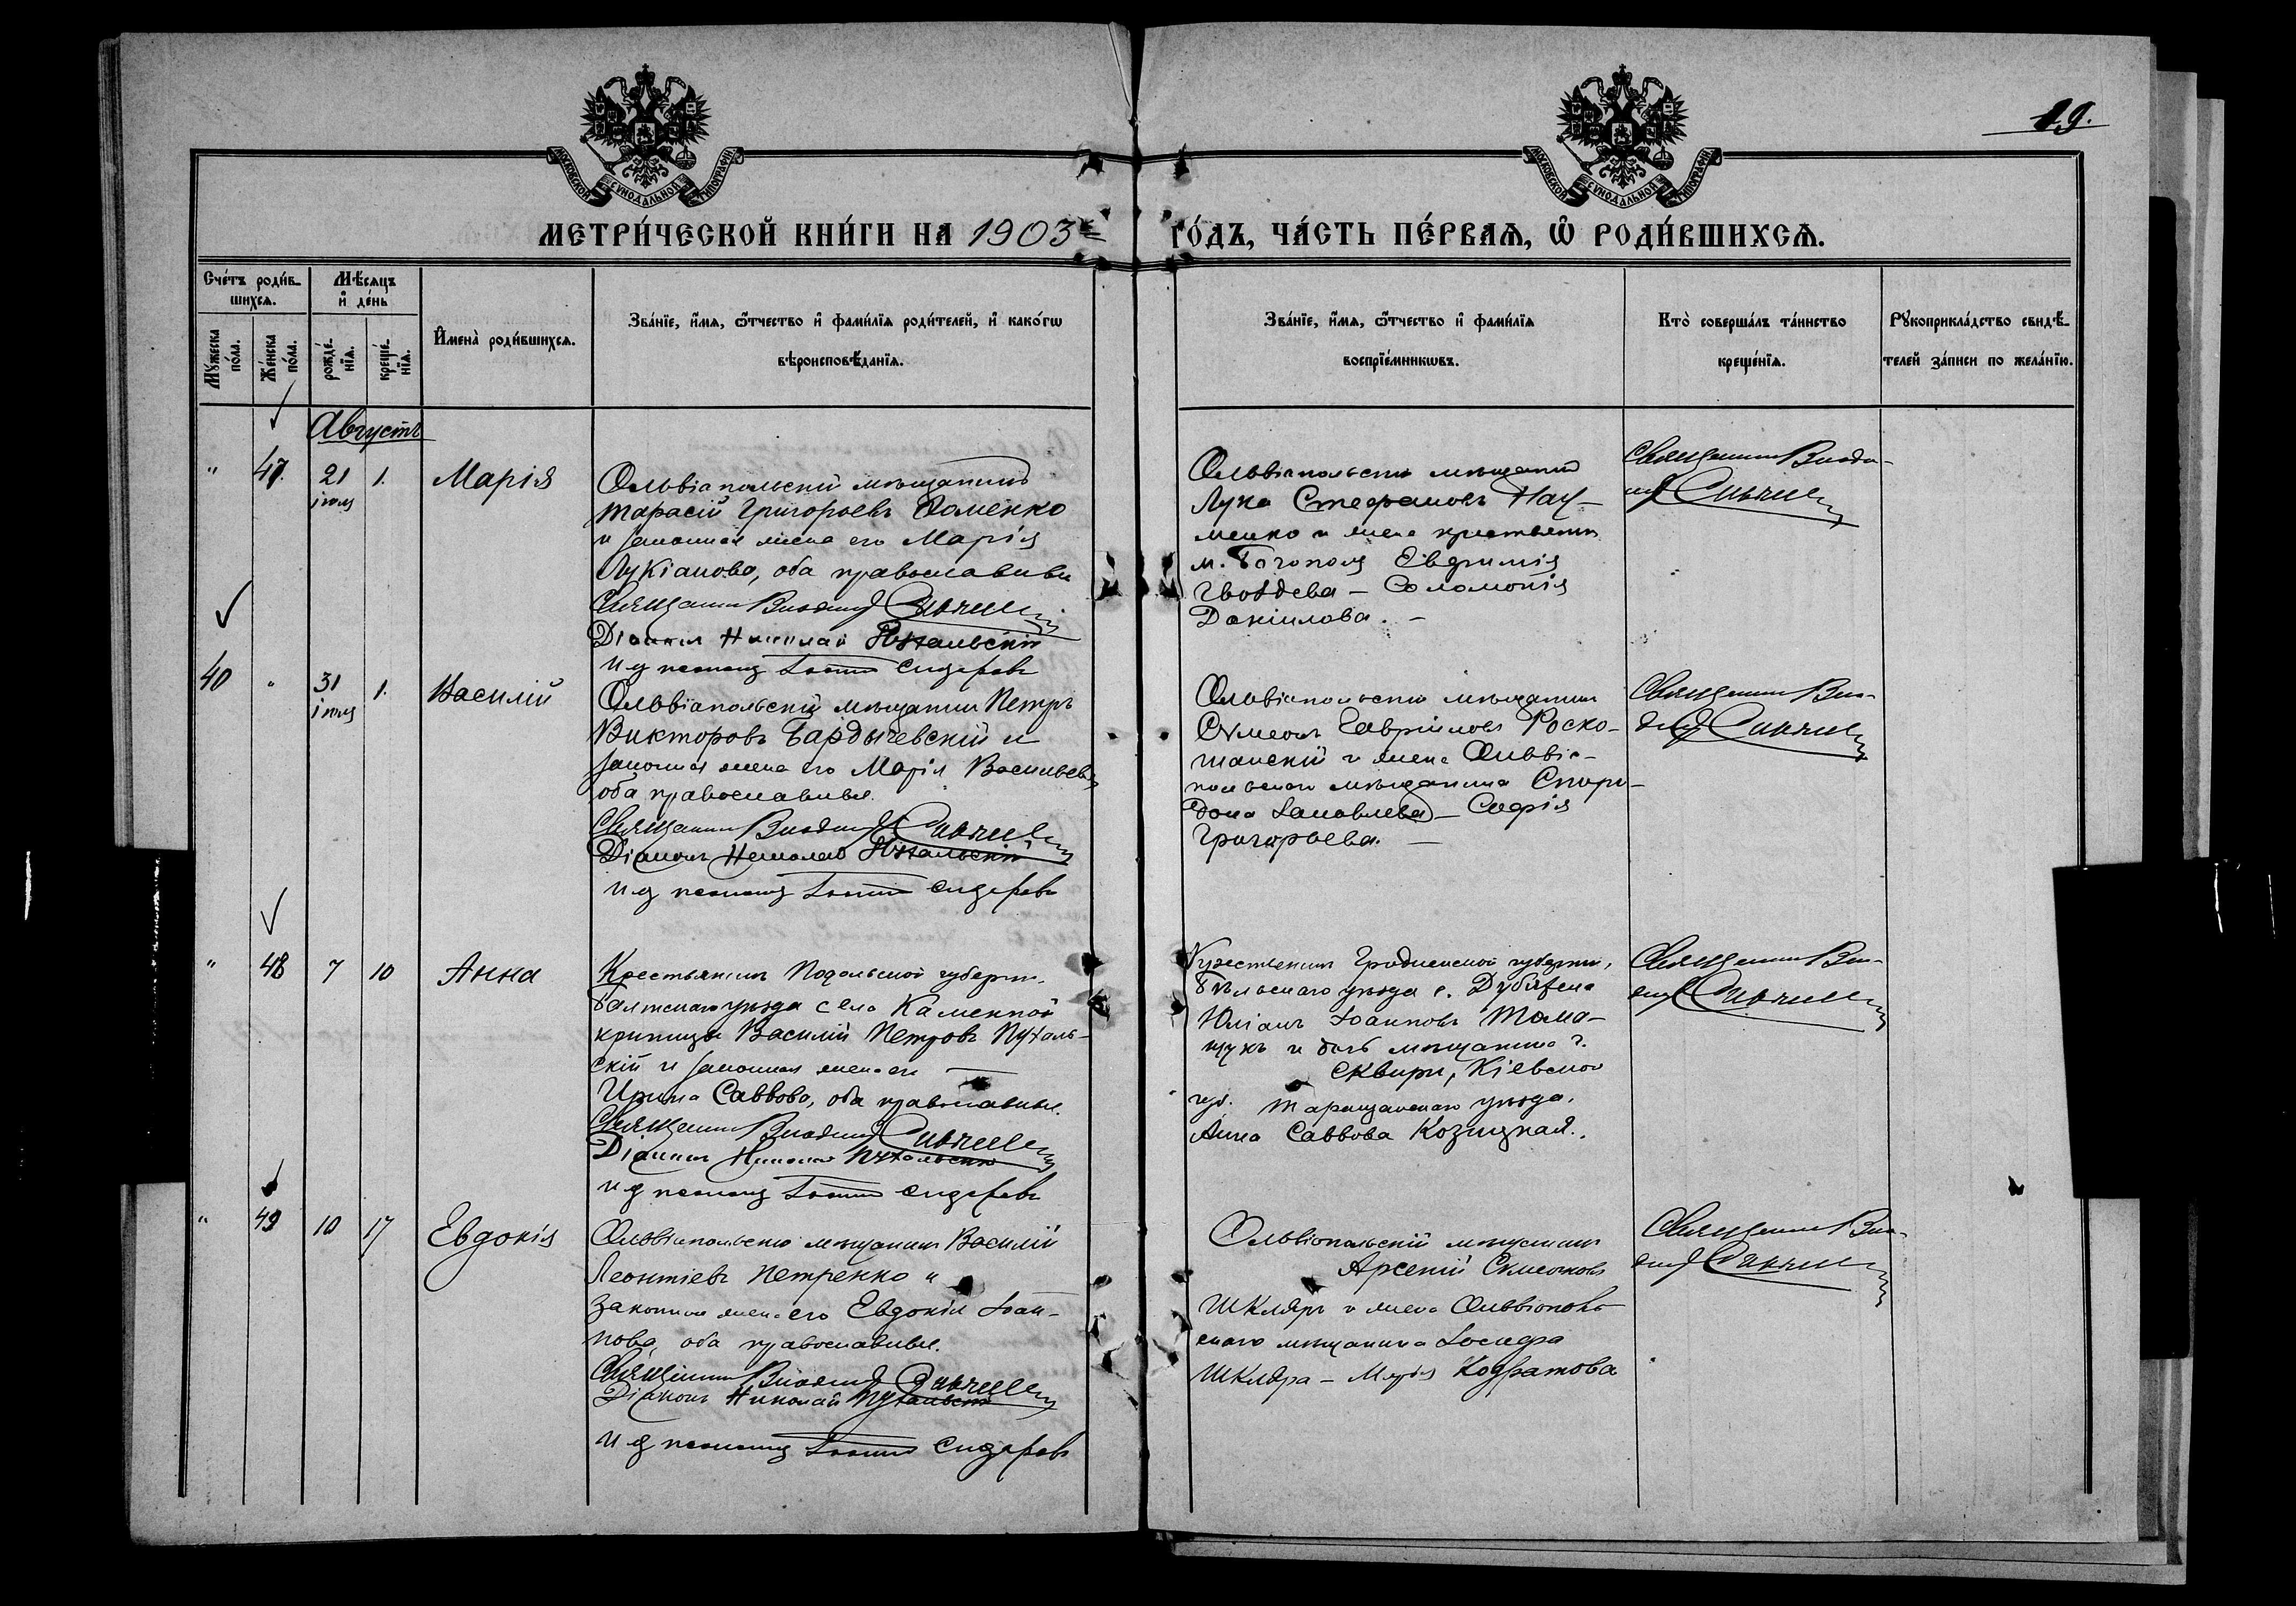 19.
МОСКОВСКОЙ СУНОДАЛЬНОЙ ТИПОГРАФІИ
МОСКОВСКОЙ СУНОДАЛЬНОЙ ТИПОГРАФІИ
МЕТРИ́ЧЕСКОЙ КНИ́ГИ НА 1903 ГО́ДЪ, ЧА́СТЬ ПЕ́РВАѦ, Ѡ РОДИ́ВШИХСѦ.
Сче́тъ роди́в-
шихсѧ.
Мꙋ́жеска по́ла.
Же́нска по́ла.
Мѣ́сѧцъ
и҆ де́нь
рожде́-
нїѧ.
креще́-
нїѧ.
И҆мена̀ роди́вшихсѧ.
Зва́нїе, и҆́мѧ, ѻ҆́тчество и҆ фами́лїѧ роди́телей, и҆ како́гѡ
вѣроисповѣ́данїѧ.
Зва́нїе, и҆́мѧ, ѻ҆́тчество и҆ фами́лїѧ
воспрїе́мникѡвъ.
Кто̀ соверша́лъ та́инство
креще́нїѧ.
Рꙋкоприкла́дство свидѣ́-
телей за́писи по жела́нїю.
Августъ
" 47. 21 іюля 1. Марія
Ольвіапольскій мѣщанинъ
Тарасій Григорьевъ Доменко
и законная жена его Марія
Лукіанова, оба православные
Священникъ
Діаконъ Николай Пухальскій
и д псаломщ Сидоровъ
Ольвіапольскій мѣщанинъ
Лука Стефановъ Нау-
менко и жена крестьянина
м. Богополя Евфимія
Гвоздева – Соломонія
Даніилова. –
Священникъ
40 " 31 іюля 1. Василій
Ольвіапольскій мѣщанинъ Петръ
Викторовъ Бардычевскій и
законная жена его Марія Васильева
оба православные.
Священникъ
Діаконъ Николай Пухальскій
и д псаломщ Сидоровъ
Ольвіапольскій мѣщанинъ
Сѵмеонъ Гавріиловъ Роско-
шанскій и жена Ольвіа-
польскаго мѣщанина Спири-
дона Яковлева – Софія
Григорьева. –
Священникъ
" 48 7 10 Анна
Крестьянинъ Подольской губерніи,
Балтскаго уѣзда села Каменной
криницы Василій Петровъ Пухаль-
скій и законная жена его
Ирина Саввова, оба православные.
Священникъ
Діаконъ Николай Пухальскій
и д псаломщ Сидоровъ
Крестьянинъ Гродненской губерніи,
Бѣльскаго уѣзда с.
Юліанъ Іоанновъ Тома-
щукъ и дочь мѣщанина г.
Сквиры, Кіевской
губ. Таращанскаго уѣзда,
Анна Саввова Козицкая.
Священникъ
" 49 10 17 Евдокія
Ольвіапольскій мѣщанинъ Василій
Леонтіевъ Петренко и
законная жена его Евдокія Іоан-
нова, оба православные.
Священникъ
Діаконъ Николай Пухальскій
и д псаломщ Сидоровъ
Ольвіопольскій мѣщанинъ
Арсеній
Шкляръ и жена Ольвіополь-
скаго мѣщанина Іосифа
Шкляра – Марія Кодратова
Священникъ